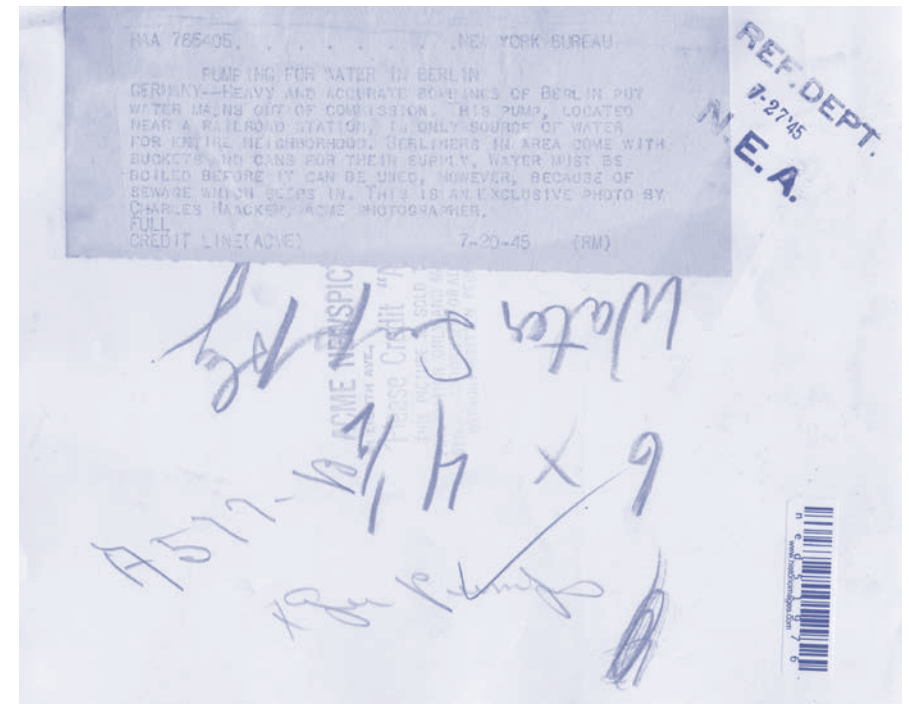 HAA 765405. . . . . . . . NEW YORK BUREAU
PUMPING FOR WATER IN BERLIN
GERMANY--HEAVY AND ACCURATE BOMBINGS OF BERLIN PUT
WATER MAINS OUT OF COMMISSION. THIS PUMP, LOCATED
NEAR A RAILROAD STATION, IS ONLY SOURCE OF WATER
FOR ENTIRE NEIGHBORHOOD. BERLINERS IN AREA COME WITH
BUCKETS AND CANS FOR THEIR SUPPLY. WATER MUST BE
BOILED BEFORE IT CAN BE USED, HOWEVER, BECAUSE OF
SEWAGE WHICH SEEPS IN. THIS IS AN EXCLUSIVE PHOTO BY
CHARLES HAACKER, ACME PHOTOGRAPHER.
FULL
CREDIT LINE(ACME) 7-20-45 (RM)
REF. DEPT.
7-27'45
N. E. A.
Water Supply
6 x 4 1/2
ACME NEWSPIC
Please Credit "A
THIS PICTURE IS SOLD
A577-
ned539976
www.historicimages.com